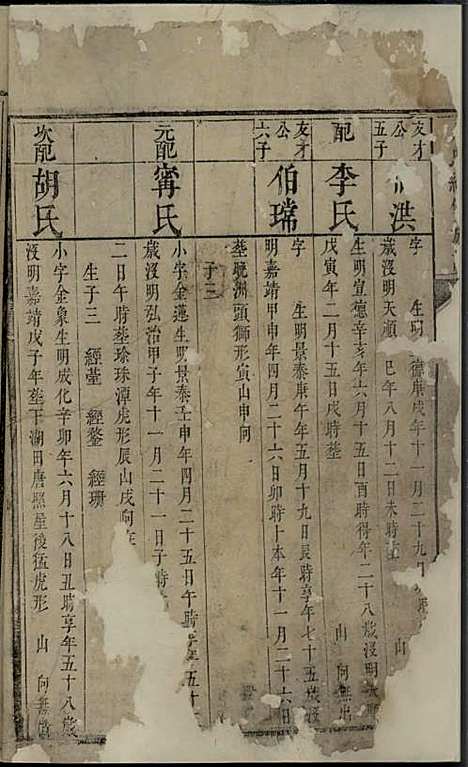 友才公五子
洪
字 生明 德庚戌年十一月二十九
歲沒明天順 巳年八月十二日未時
配
李氏
生明宣德辛亥年六月十五日酉時得年二十八歲沒明天順
戊寅年二月十五日戌時塟 山 向無出
友才公六子
伯瑺
字 生明景泰庚午年五月十九日辰時享年七十五歲沒
明嘉靖甲申年四月二十六日卯時卜本年十一月二十六日
塟 洲頭獅形寅山申向
子三
元配
甯氏
小字金蓮生明景泰壬申年四月二十五日午時 年五十
歲沒明弘治甲子年十一月二十一日子時
二日午時塟瑜珠潭虎形辰山戌向
生子三 經 經 經珊
次配
胡氏
小字金象生明成化辛卯年六月十八日丑時享年五十八歲
沒明嘉靖戊子年塟下湖田唐照屋後猛虎形 山 向無